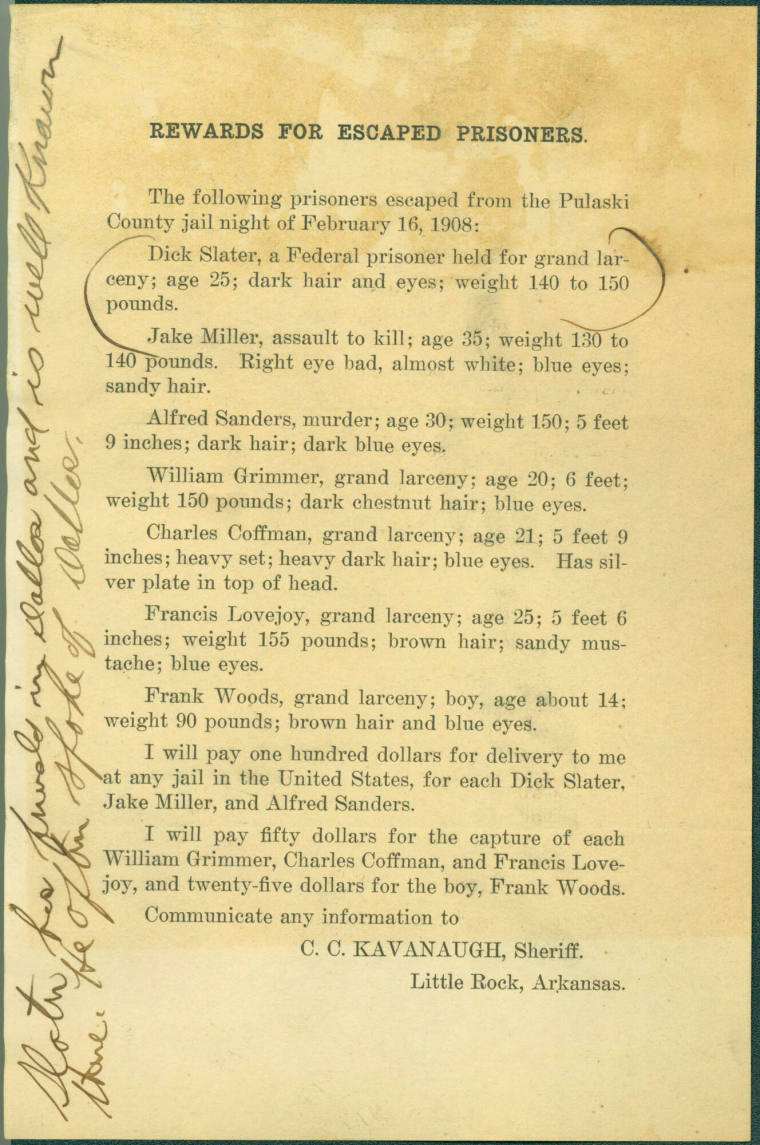 REWARDS FOR ESCAPED PRISONERS.
The following prisoners escaped from the Pulaski
County jail night of February 16, 1908:
Dick Slater, a Federal prisoner held for grand lar-
ceny; age 25; dark hair and eyes; weight 140 to 150
pounds.
Jake Miller, assault to kill; age 35; weight 130 to
140 pounds. Right eye bad, almost white; blue eyes;
sandy hair.
Alfred Sanders, murder; age 30; weight 150; 5 feet
9 inches; dark hair; dark blue eyes.
William Grimmer, grand larceny; age 20; 6 feet;
weight 150 pounds; dark chestnut hair; blue eyes.
Charles Coffman, grand larceny; age 21; 5 feet 9
inches; heavy set; heavy dark hair; blue eyes. Has sil-
ver plate in top of head.
Francis Lovejoy, grand larceny; age 25; 5 feet 6
inches; weight 155 pounds; brown hair; sandy mus-
tache; blue eyes.
Frank Woods, grand larceny; boy, age about 14;
weight 90 pounds; brown hair and blue eyes.
I will pay one hundred dollars for delivery to me
at any jail in the United States, for each Dick Slater,
Jake Miller, and Alfred Sanders.
I will pay fifty dollars for the capture of each
William Grimmer, Charles Coffman, and Francis Love-
joy, and twenty-five dollars for the boy, Frank Woods.
Communicate any information to
C. C. KAVANAUGH, Sheriff.
Little Rock, Arkansas.
Slater has in Dallas and is well Known
there. He often spoke of Dallas.